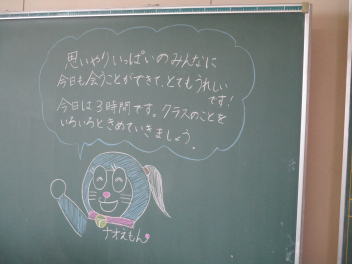 思いやりいっぱいのみんなに
今日も会うことができて、とてもうれしい
です!
今日は3時間です。クラスのことを
いろいろときめていきましょう。
ナオえもん